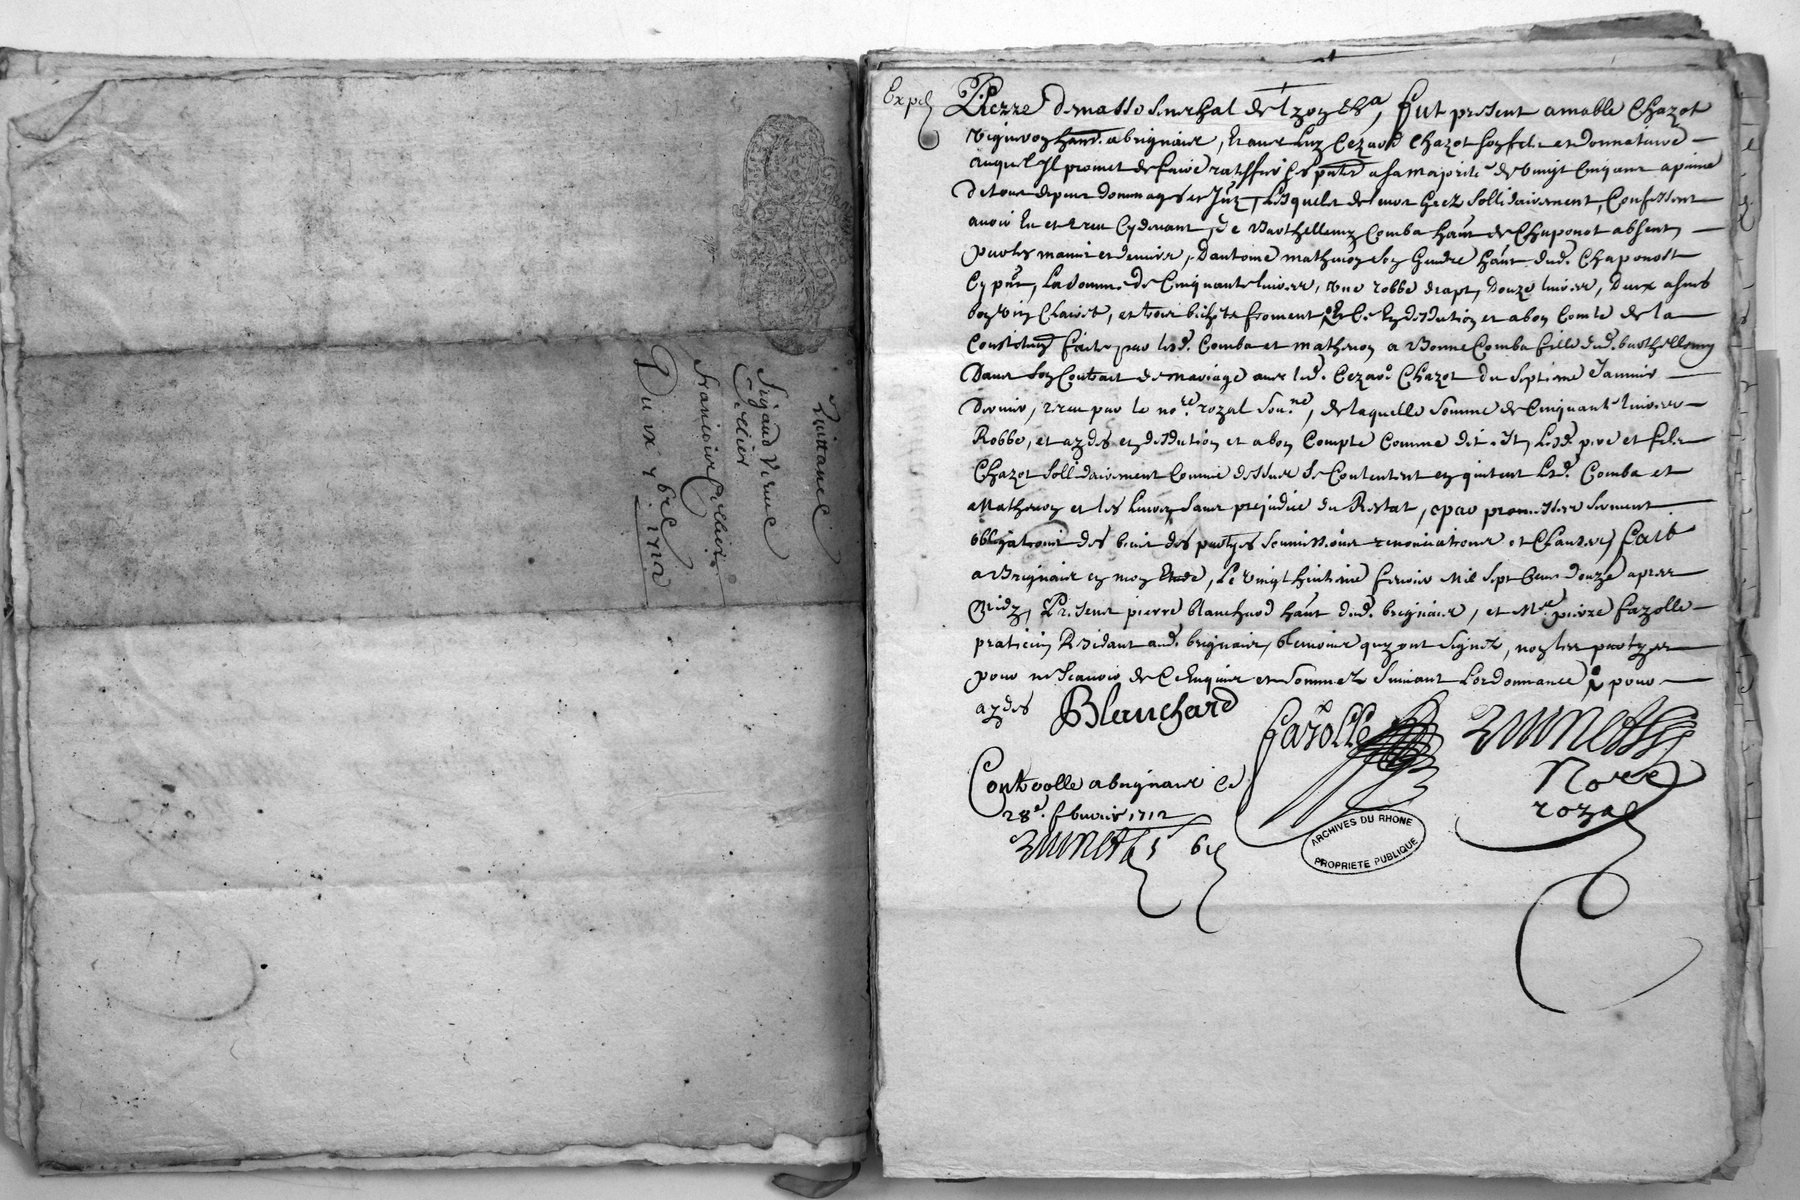 Quittance
Sigaud Veuve
Cellier
François Cellier
Du ix xbre 1712
Expéd
Pierre Demasso Senechal de Lyon etca, fut present amable Chazot
Vigneron hant. a brignais, Et avec luy Cezard Chazot son fils et donnataire
auquel Il promet de faire rattiffier ses pntes a sa majorité de vingt Cinq ans a peine
de tous depens dommages et Intz, Lesquels de leur gré sollidairement, Confessent
avoir Eu et receu Cydevant, de Barthellemy Comba hant de Chaponost absent
par les mains et deniers, D'antoine matheron son Gendre hant dud. Chaponost
Cy pnt, La somme de Cinquante livres, une robbe drapt, douze livres, deux asnées
bon vin Clairet, et trois bichets froment & Ce En dedution et a bon Comte de la
Constitution faite par lesd. Comba et matheron a Bonne Comba fille dud. barthellemy
Dans son Contrait de mariage avec led. Cezard Chazot du septieme Janvier
dernier, receu par le nore. royal sousné, de laquelle somme de Cinquante livres
Robbe, et azdes en dedution et a bon Compte Comme dit Est, Lesd. pere et fils
Chazot sollidairement Comme dessus se Contentent en quittent Lesd. Comba et
Matheron et les leurs sans prejudice du Restat, par promesses serment
obligations des biens des partyes soumissions renonciations et Clauses, fait
a Brignais en mon Etude, Le vingt huitieme fevrier Mil sept Cens douze apres
Midy, Presens pierre blanchard hant dud. brignais, et Mre. pierre fazolle
praticien Residant aud. brignais, temoins quy ont signéz, non les partyes
pour ne scavoir de Ce Enquis et sommez suivant Lordonnance & pour
azdes Blanchard
fazolle
Brunet
Nore
royal
Controllé a brignais Ce
28e. fevrier 1712
Brunet
ARCHIVES DU RHONE
PROPRIETE PUBLIQUE